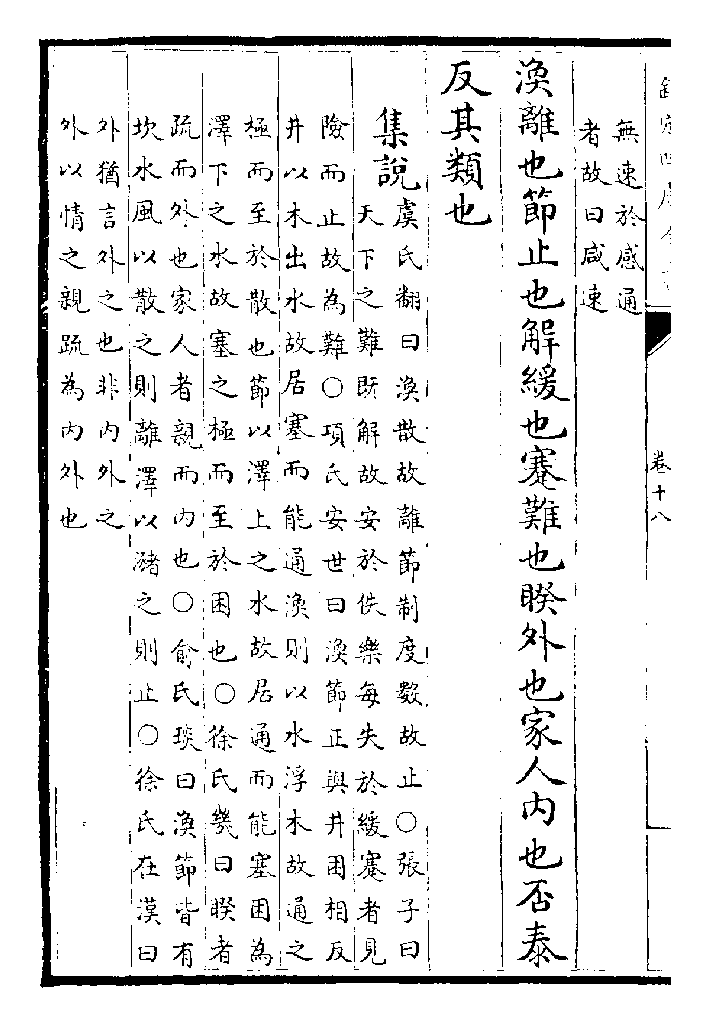 欽定四庫全書
卷十八
無速於感通
者故曰咸速
渙離也節止也解緩也蹇難也睽外也家人内也否泰
反其類也
集説虞氏翻曰渙散故離節制度數故止○張子曰
天下之難既解故安於佚樂每失於緩蹇者見
險而止故為難○項氏安世曰渙節正與井困相反
井以木出水故居塞而能通渙則以水浮木故通之
極而至於散也節以澤上之水故居通而能塞困為
澤下之水故塞之極而至於困也○徐氏幾曰睽者
疏而外也家人者親而内也○俞氏琰曰渙節皆有
坎水風以散之則離澤以瀦之則止○徐氏在漢曰
外猶言外之也非内外之
外以情之親疏為内外也